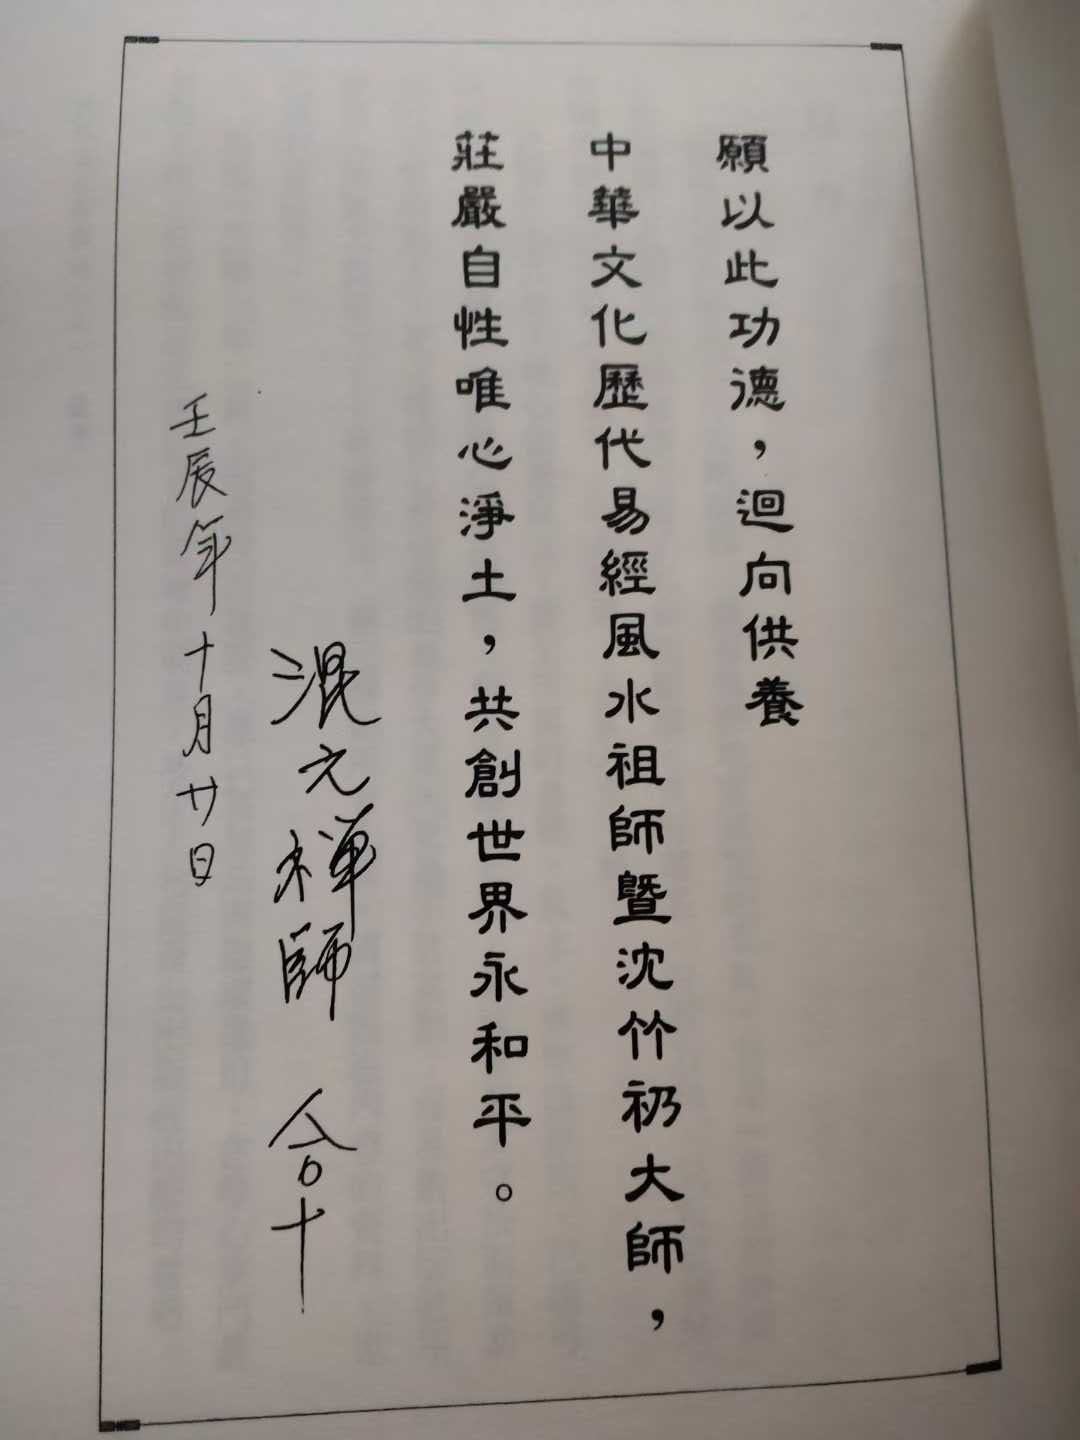 願以此功德，迴向供養
中華文化歷代易經風水祖師暨沈竹礽大師，
莊嚴自性唯心淨土，共創世界永和平。
混元禪師 合十
壬辰年十月廿日